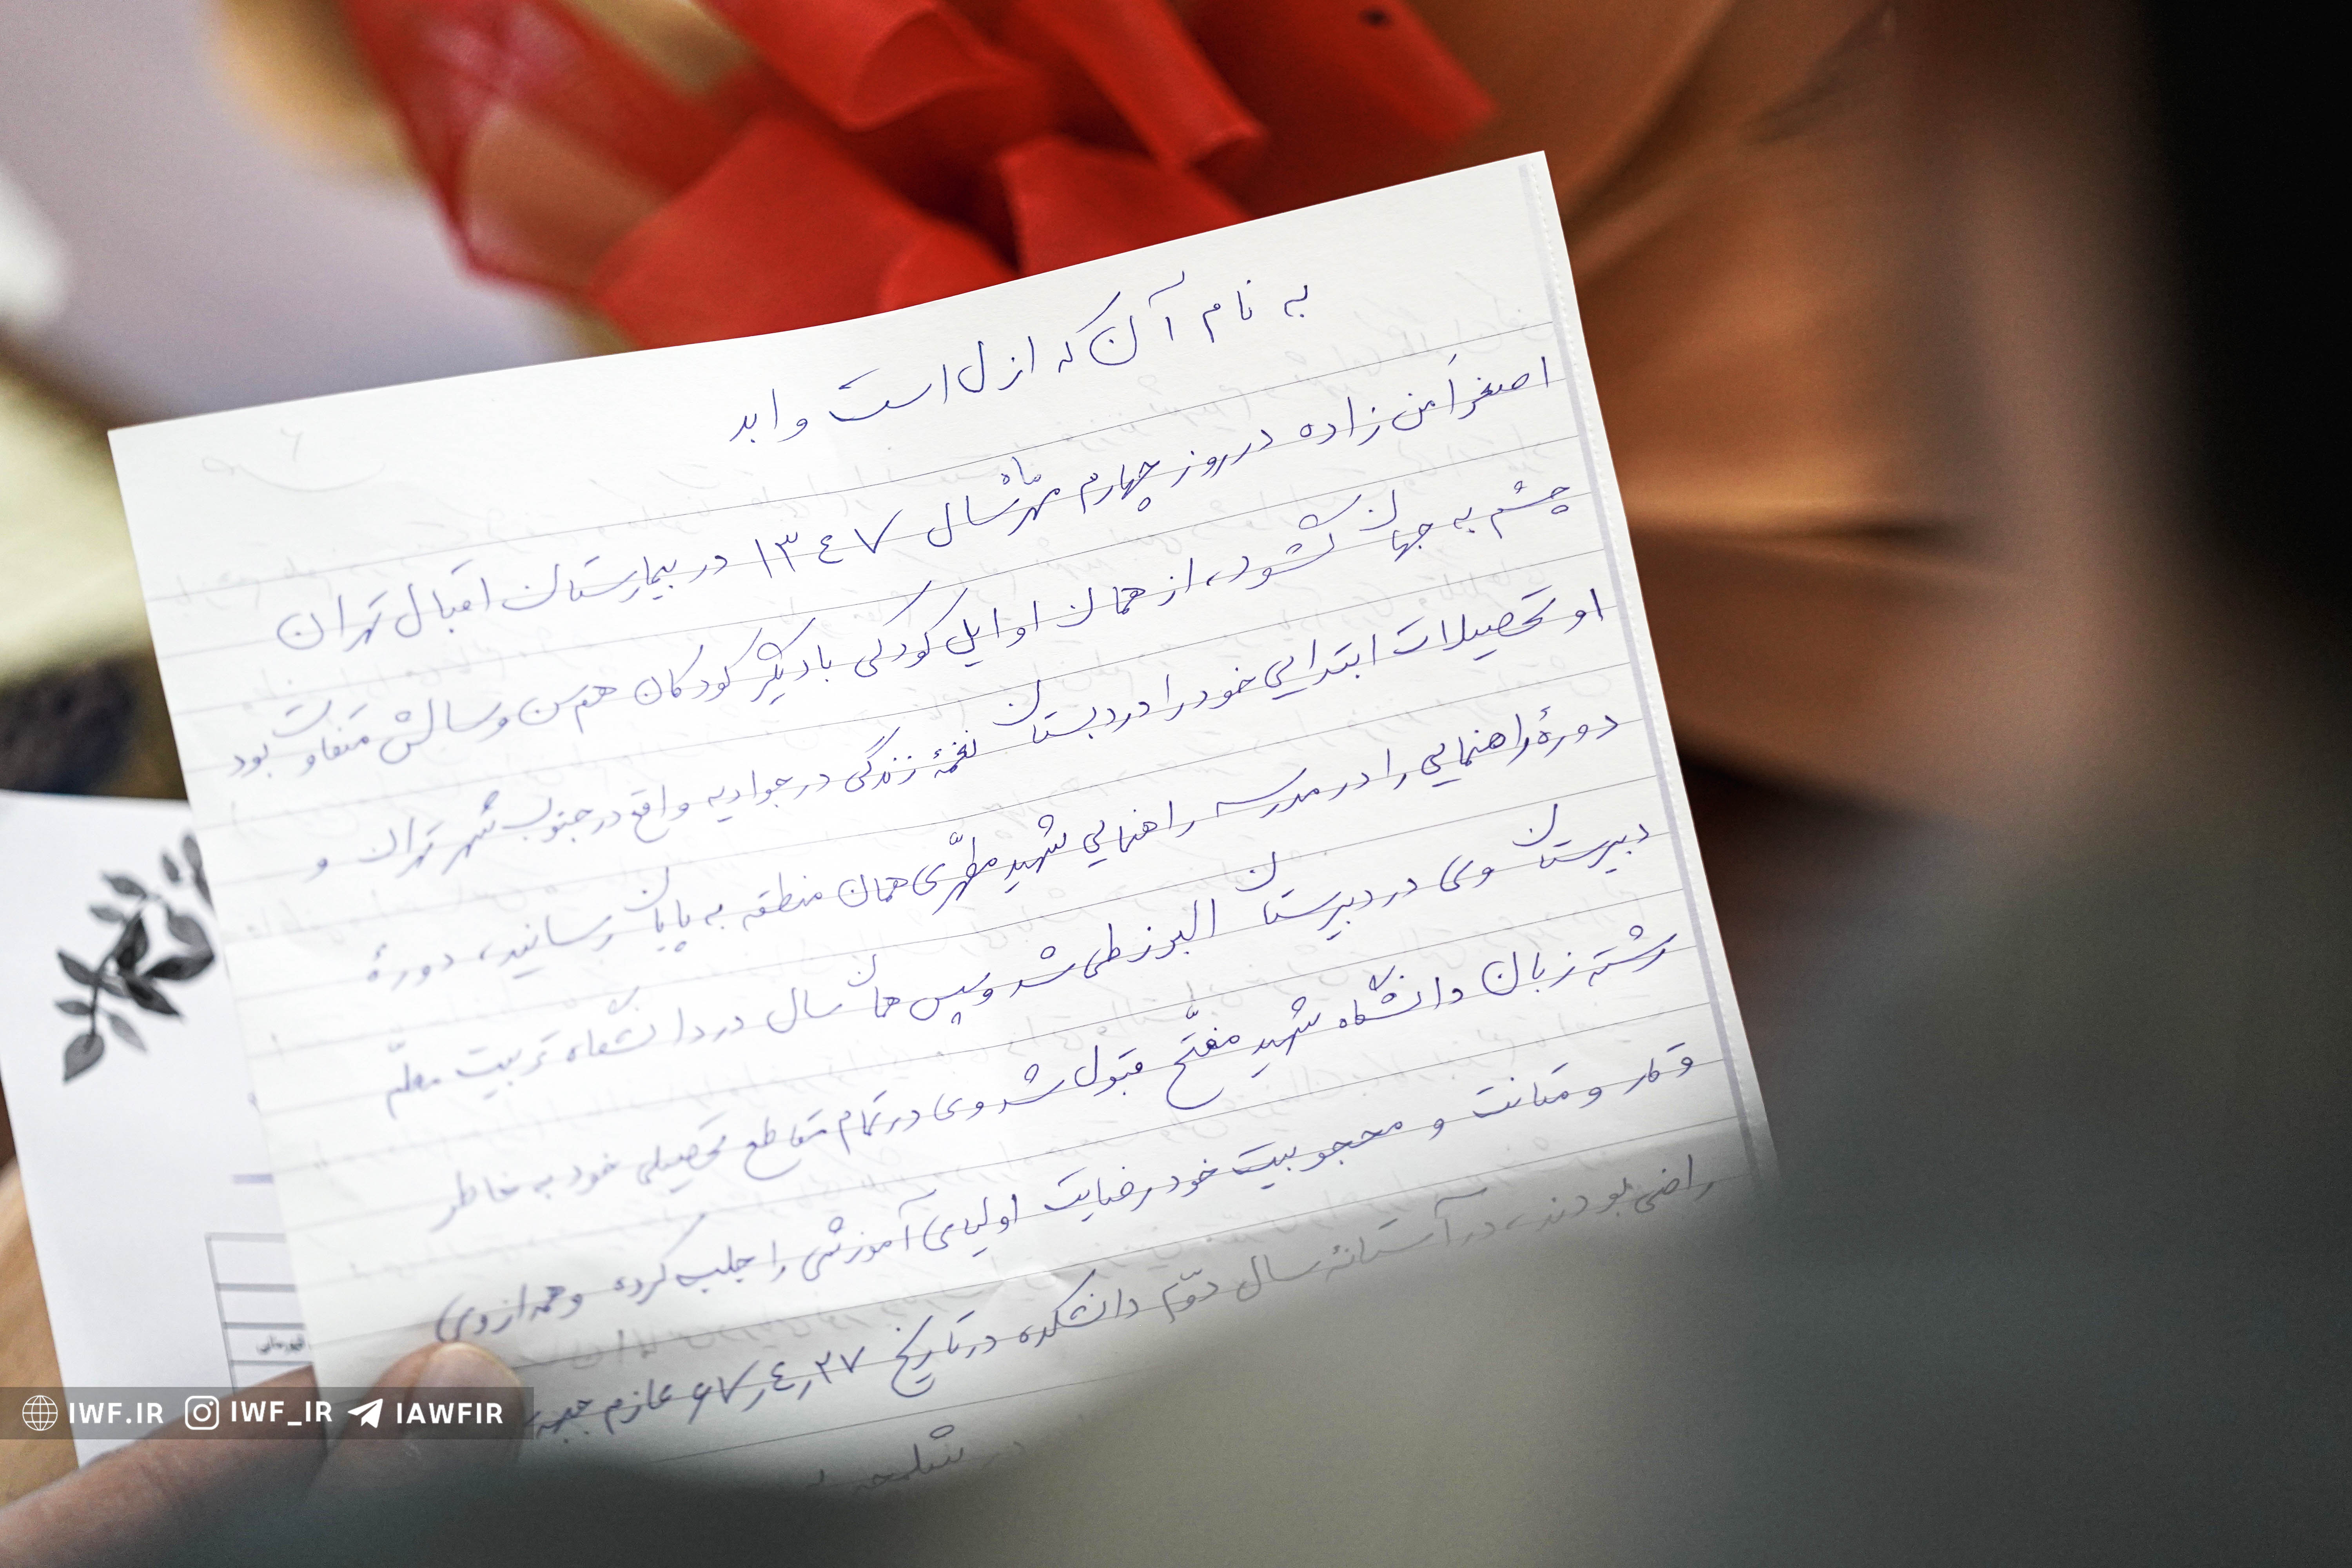 به نام آن که ازل است و ابد
اصغر امن زاده در روز چهارم مهرماه سال ۱۳۴۷ در بیمارستان اقبال تهران
چشم به جهان گشود، از همان اوایل کودکی با دیگر کودکان هم سن و سالش متفاوت بود
او تحصیلات ابتدایی خود را در دبستان نغمهٔ زندگی در جوادیه واقع در جنوب شهر تهران و
دورهٔ راهنمایی را در مدرسه راهنمایی شهید مطهّری همان منطقه به پایان رسانید، دورهٔ
دبیرستان وی در دبیرستان البرز طی شد و سپس همان سال در دانشگاه تربیت معلّم
رشته زبان دانشگاه شهید مفتّح قبول شد وی در تمام مقاطع تحصیلی خود به خاطر
وقار و متانت و محجوبیت خود رضایت اولیای آموزشی را جلب کرده و همه از وی
راضی بودند، در آستانهٔ سال دوّم دانشکده در تاریخ ۶۷٫۴٫۲۷ عازم جبهه
در شلمچه به
قهرمانی
IWF.IR IWF_IR IAWFIR